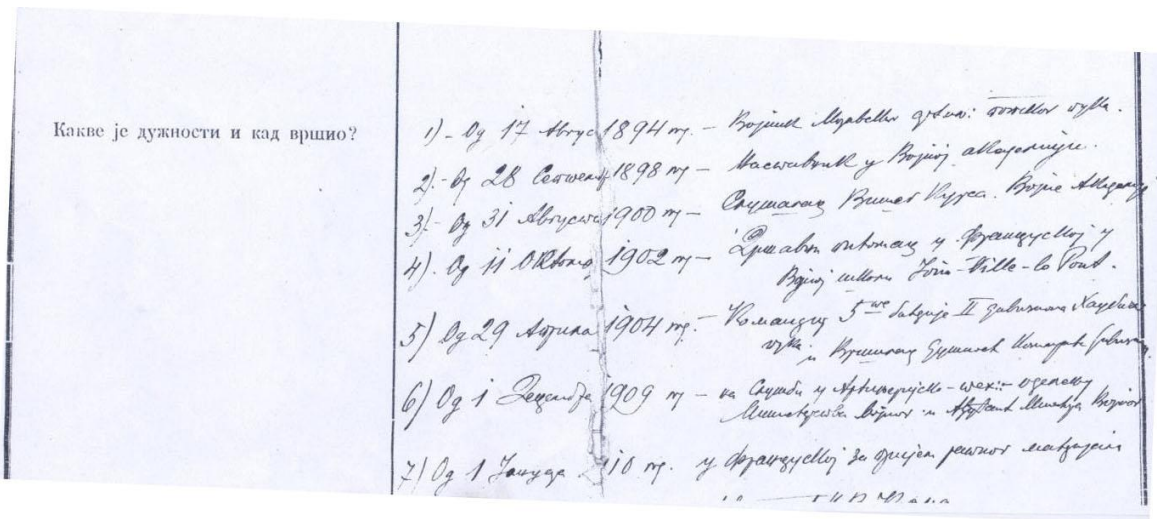 Какве је дужности и кад вршио?
1) - Од 17 Август 1894 год. - Војник
2) - Од 28 Септемб 1898 год - Наставник у Војној академији.
3) - Од 31 Августа 1900 год - Слушалац Вишег Курса Војне Академије
4) - Од 11 Октомб 1902 год - Државни питомац у Француској у
Војној школи Join-Ville-le Pont.
5) Од 29 Априла 1904 год. - Командир 5те батерије II дивизиона Хаубичког
пука и Вршилац Дужности Команданта дивизиона.
6) Од 1 Децембра 1909 год - на служби у Артиљеријско-техн: одељењу
Министарства Војног и Ађутант Министра Војног
7) Од 1 Јануара 910 год. у Француској за пријем ратног материјала